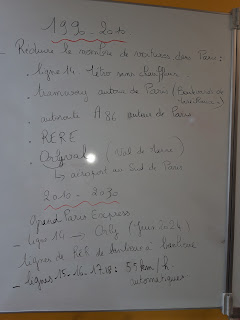 1990-2010
- Réduire le nombre de voitures dans Paris :
. ligne 14 Métro sans chauffeur.
. tramway autour de Paris (Boulevards des
Maréchaux)
. autoroute A 86 autour de Paris
. RER E
. Orlyval (Val de Marne)
↳ aéroport au Sud de Paris
2010 - 2030
Grand Paris Express
- ligne 14 → Orly (Juin 2024)
lignes de RER de banlieue à banlieue
- lignes 15-16-17-18 : 55 km/h
automatiques